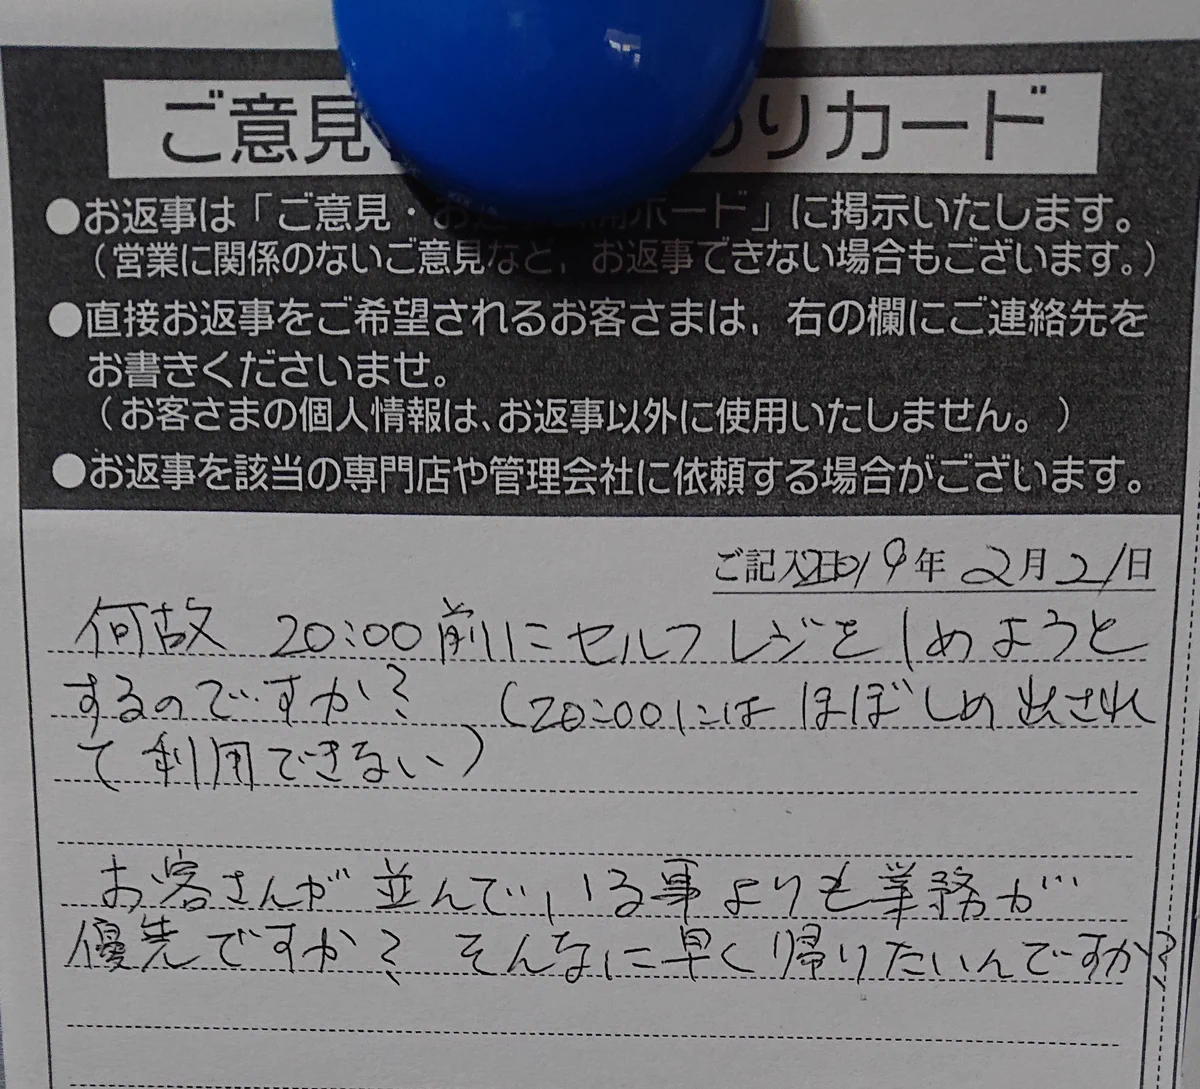 ご意見 りカード
●お返事は「ご意見・お ボード」に掲示いたします。
（営業に関係のないご意見など、お返事できない場合もございます。）
●直接お返事をご希望されるお客さまは、右の欄にご連絡先を
お書きくださいませ。
（お客さまの個人情報は、お返事以外に使用いたしません。）
●お返事を該当の専門店や管理会社に依頼する場合がございます。
ご記入日 2019年 2月21日
何故 20:00前にセルフレジをしめようと
するのですか? (20:00にはほぼしめ出され
て利用できない)
お客さんが並んでいる事よりも業務が
優先ですか? そんなに早く帰りたいんですか?